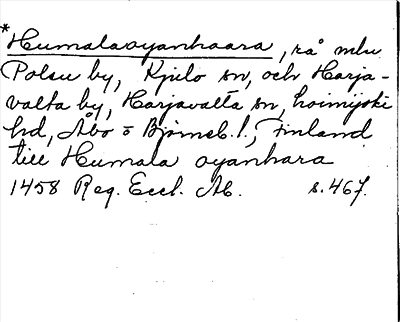 *Humalaoyanhaara, rå mln
Polsu by, Kjulo sn, och Harja-
valta by, Harjavalta sn, Loimijoki
hd, Åbo o Björneb. l., Finland
till Humala oyanhara
1458 Reg. Eccl. Ab. s. 467.